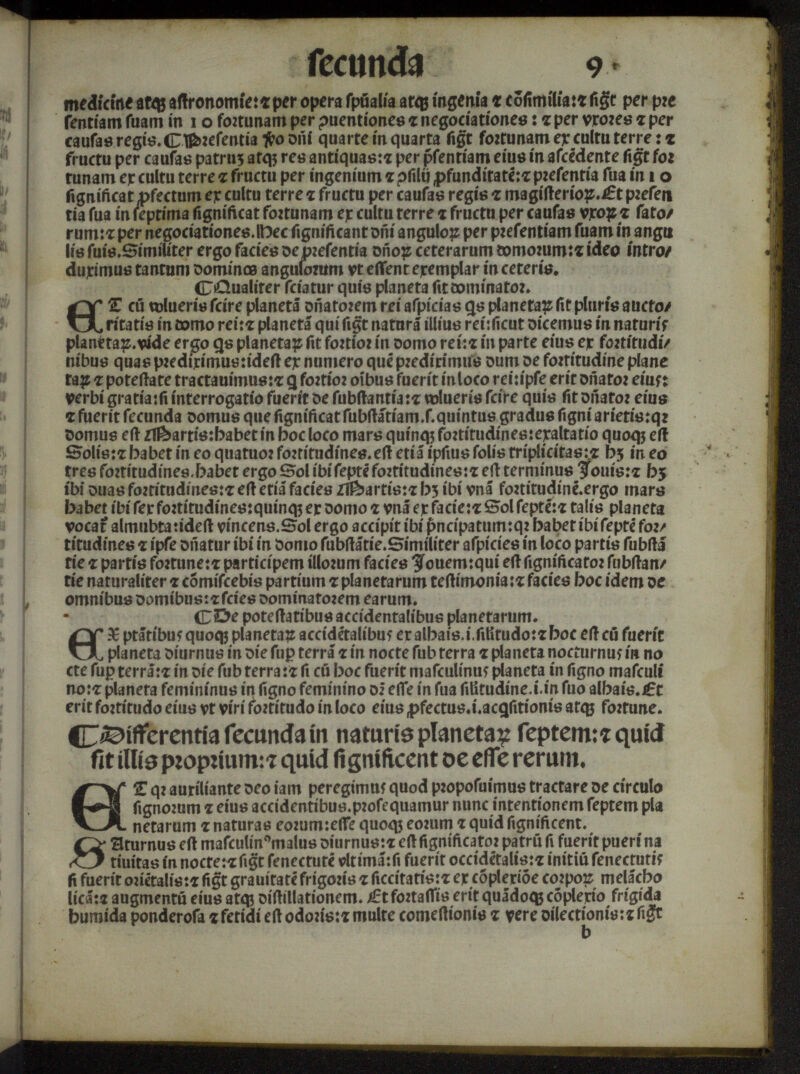 secunda 9
medicine atqꝫ astronomie: ⁊ per opera spūalia atqꝫ ingenia ⁊ cōsimilia: ⁊ sigt̄ per pre
sentiam suam in 10 fortunam per ꝯuentiones ⁊ negociationes: ⁊ per vxores ⁊ per
causas regis. ¶ Presentia ꝟo dn̄i quarte in quarta sigt̄ fortunam ex cultu terre: ⁊
fructu per causas patruꝫ atqꝫ res antiquas: ⁊ per p̄sentiam eius in ascēdente sigt̄ for
tunam ex cultu terre ⁊ fructu per ingenium ⁊ ꝯsiliū ꝓfunditatē: ⁊ presentia sua in 10
significat ꝓfectum ex cultu terre ⁊ fructu per causas regis ⁊ magisterioꝝ. Et presen
tia sua in septima significat fortunam ex cultu terre ⁊ fructu per causas vxoꝝ ⁊ fato/
rum: ⁊ per negociationes. Hec significant dn̄i anguloꝝ per presentiam suam in angu
lis suis. Similiter ergo facies de presentia dn̄oꝝ ceterarum domorum: ⁊ ideo intro/
duximus tantum dominos angulorum vt essent exemplar in ceteris.
¶ Qualiter sciatur quis planeta sit dominator.
ET cū volueris scire planetā dn̄atorem rei aspicias qs planetaꝝ sit pluris aucto/
ritatis in domo rei: ⁊ planetā qui sigt̄ naturā illius rei: sicut dicemus in naturis
planetaꝝ. vide ergo qs planetaꝝ sit fortior in domo rei: ⁊ in parte eius ex fortitudi/
nibus quas prediximus: idest ex numero quē prediximus dum de fortitudine plane
taꝝ ⁊ potestate tractauimus: ⁊ q fortior oibus fuerit in loco rei: ipse erit dn̄ator eius:
verbi gratia: si interrogatio fuerit de substantia: ⁊ volueris scire quis sit dn̄ator eius
⁊ fuerit secunda domus que significat substātiam. s. quintus gradus signi arietis: qꝛ
domus est Martis: habet in hoc loco mars quinqꝫ fortitudines: exaltatio quoqꝫ est
Solis: ⁊ habet in eo quatuor fortitudines. est etiā ipsius solis triplicitas: ⁊ hꝫ in eo
tres fortitudines. habet ergo Sol ibi septē fortitudines: ⁊ est terminus Jouis: ⁊ hꝫ
ibi duas fortitudines: ⁊ est etiā facies Martis: ⁊ hꝫ ibi vnā fortitudinē. ergo mars
habet ibi sex fortitudines: quinqꝫ ex domo ⁊ vnā ex facie: ⁊ Sol septē: ⁊ talis planeta
vocat̄ almubta: idest vincens. Sol ergo accipit ibi p̄ncipatum: qꝛ habet ibi septē for/
titudines ⁊ ipse dn̄atur ibi in domo substātie. Similiter aspicies in loco partis substā
tie ⁊ partis fortune: ⁊ participem illorum facies Jouem: qui est significator substan/
tie naturaliter ⁊ cōmiscebis partium ⁊ planetarum testimonia: ⁊ facies hoc idem de
omnibus domibus: ⁊ scies dominatorem earum.
¶ De potestatibus accidentalibus planetarum.
EX ptātibus quoqꝫ planetaꝝ accidētalibus ex alhais. i. silitudo: ⁊ hoc est cū fuerit
planeta diurnus in die sup terrā ⁊ in nocte sub terra ⁊ planeta nocturnus in no
cte sup terrā: ⁊ in die sub terra: ⁊ si cū hoc fuerit masculinus planeta in signo masculi
no: ⁊ planeta femininus in signo feminino dꝛ esse in sua silitudine. i. in suo alhais. Et
erit fortitudo eius vt viri fortitudo in loco eius ꝓfectus. i. acqsitionis atqꝫ fortune.
¶ Differentia secunda in naturis planetaꝝ septem: ⁊ quid
sit illis proprium: ⁊ quid significent de esse rerum.
ET qꝛ auxiliante deo iam peregimus quod proposuimus tractare de circulo
signorum ⁊ eius accidentibus. prosequamur nunc intentionem septem pla
netarum ⁊ naturas eorum: esse quoqꝫ eorum ⁊ quid significent.
Saturnus est masculinꝰ malus diurnus: ⁊ est significator patrū si fuerit pueri na
tiuitas in nocte: ⁊ sigt̄ senectutē vltimā: si fuerit occidētalis: ⁊ initiū senectutis
si fuerit oriētalis: ⁊ sigt̄ grauitatē frigoris ⁊ siccitatis: ⁊ ex cōplexiōe corpoꝝ melācho
licā: ⁊ augmentū eius atqꝫ distillationem. Et fortassis erit quādoqꝫ cōplexio frigida
humida ponderosa ⁊ fetidi est odoris: ⁊ multe comestionis ⁊ vere dilectionis: ⁊ sigt̄
b